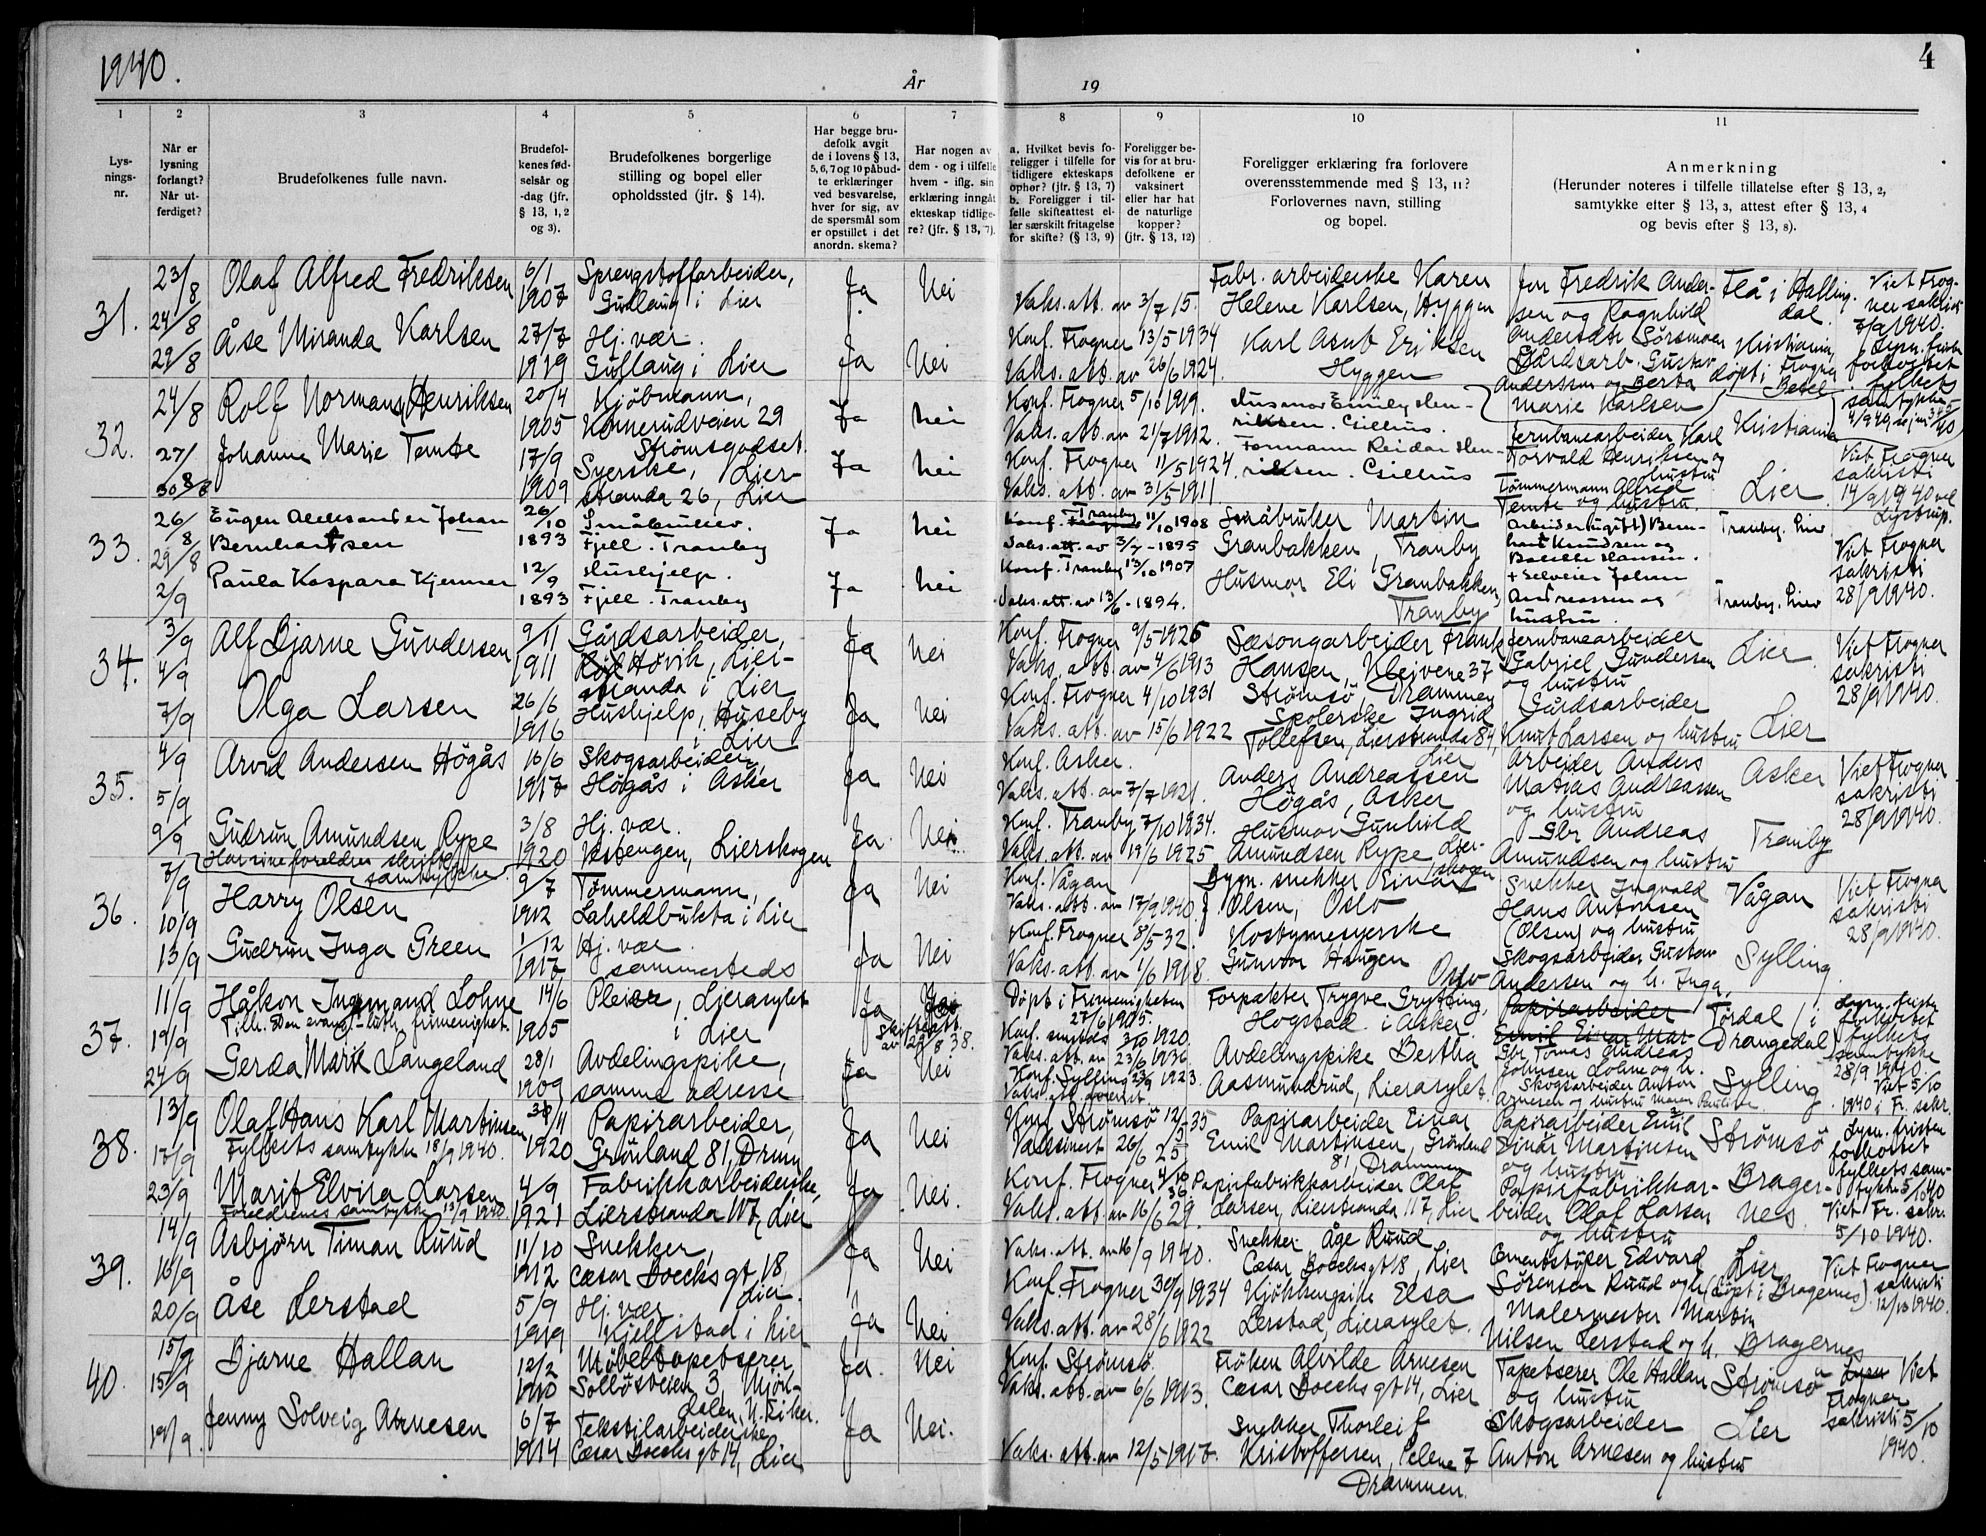 1940.
År
19
4
1
2
3
4
5
6
7
8
9
10
11
Lys-
nings-
nr.
Når er
lysning
forlangt?
Når ut-
ferdiget?
Brudefolkenes fulle navn.
Brudefol-
kenes fød-
selsår og
-dag (jfr.
§ 13, 1, 2
og 3).
Brudefolkenes borgerlige
stilling og bopel eller
opholdssted (jfr. § 14).
Har begge bru-
defolk avgit
de i lovens § 13,
5, 6, 7 og 10 påbud-
te erklæringer
ved besvarelse,
hver for sig, av
de spørsmål som
er opstillet i det
anordn. skema?
Har nogen av
dem - og i tilfelle
hvem - iflg. sin
erklæring inngått
ekteskap tidlige-
re? (jfr. § 13, 7).
a. Hvilket bevis fo-
religger i tilfelle for
tidligere ekteskaps
ophør? (jfr. § 13, 7)
b. Foreligger i til-
felle skifteattest el-
ler særskilt fritagelse
for skifte? (§ 13, 9)
Foreligger be-
vis for at bru-
defolkene er
vaksinert
eller har hat
de naturlige
kopper?
(jfr. § 13, 12)
Foreligger erklæring fra forlovere
overensstemmende med § 13, 11?
Forlovernes navn, stilling
og bopel.
Anmerkning
(Herunder noteres i tilfelle tillatelse efter § 13, 2,
samtykke efter § 13, 3, attest efter § 13, 4
og bevis efter § 13, 8).
31.
23/8
24/8
29/8
Olaf Alfred Fredriksen
6/1
1907
Sprengstoffarbeider,
Gullaug i Lier
Ja
Nei
Vaks. att. av 3/7 15.
Konf. Frogner 13/5 1934
Fabr. arbeiderske Karen
Helene Karlsen, Hyggen
Fredrik Ander-
sen og Ragnhild
Flå i Halling-
dal.
Viet Frog-
ner sakristi
7/9 1940.
Åse Miranda Karlsen
27/7
1919
Hj. vær.
Gullaug i Lier
Ja
Nei
Vaks. att. av 26/6 1924.
Karl Eriksen
Hyggen
Gårdsarb. Gustav
Anderssen og Berta
Marie Karlsen
Kristiania,
døpt i Frogner
32.
24/8
27/
30/8
Rolf Norman Henriksen
20/4
1905
Kjøbmann,
Konnerudveien 29
Strømsgodset
Ja
Nei
Konf. Frogner 5/10 1919.
Vaks. att. av 21/7 1912.
Husmor Emily Hen-
riksen. Gillhus.
Jernbanearbeider Karl
Torvald Henriksen og
hustru
Kristiania
Johanne Marie Temte
17/9
1909
Syerske, Lier-
stranda 26, Lier
Ja
Nei
Konf. Frogner 11/5 1924
Vaks. att. av 31/5 1911.
Formann Reidar Hen-
riksen. Gillhus
Tømmermann Alfred
Temte og hustru
Lier
Viet Frogner
sakristi
14/9 1940
33.
26/8
29/8
2/9
Eugen Aleksander Johan
Bernhartsen
26/10
1893
Småbruker.
Fjell. Tranby
Ja
Nei
Konf. Tranby 11/10 1908
Vaks. att. av 3/7 - 1895
Småbruker Martin
Granbakken, Tranby
Arbeider (ugift) Bern-
hart Knudsen og
Hansen.
Tranby. Lier
Viet Frogner
sakristi
28/9 1940.
Paula Kaspara Kjenner
12/9
1893
Hushjelp.
Fjell. Tranby
Ja
Nei
Konf. Tranby 13/10 1907
Vaks. att. av 13/6 - 1894.
Husmor Eli Granbakken,
Tranby
+ Selveier Johan
Andreassen og
hustru.
Tranby. Lier
34.
3/9
4/9
7/9
Alf Bjarne Gundersen
9/11
1911
Gårdsarbeider,
Høvik, Lier-
stranda i Lier
Ja
Nei
Konf. Frogner 9/5 1926
Vaks. att. av 4/6 1913
Sæsongarbeider Frank
Hansen, Kleivene 37
Strømsø Drammen
Jernbanearbeider
Gabriel Gundersen
og hustru
Lier
Viet Frogner
sakristi
28/9 1940.
Olga Larsen
26/6
1916
Hushjelp, Huseby
i Lier
Ja
Nei
Konf. Frogner 4/10 1931
Vaks. att. av 15/6 1922
Spolerske Ingrid
Tollefsen, Lierstranda 84,
Lier
Gårdsarbeider
Knut Larsen og hustru
Lier
35.
4/9
5/9
9/9
Arvid Andersen Högås
16/6
1917
Skogsarbeider,
Högås i Asker
Ja
Nei
Konf. Asker.
Vaks. att. av 7/7 1921.
Anders Andreassen
Högås, Asker
Arbeider Anders
Matias Andreassen
og hustru
Asker
Viet Frogner
sakristi
28/9 1940.
Gudrun Amundsen Rype
Har sine foreldres skriftl.
samtykke.
3/8
1920
Hj. vær.
Vestengen, Lierskogen
Ja.
Nei.
Konf. Tranby 7/10 1934.
Vaks. att. av 19/6 1925
Husmor Gunhild
Amundsen Rype Lier-
skogen
Gbr. Andreas
Amundsen og hustru
Tranby
36.
7/9
10/9
13/9
Harry Olsen
9/7
1912
Tømmermann,
Laheldbukta i Lier
Ja
Nei
Konf. Vågan
Vaks. att. av 17/9 1940.
Bygn. snekker Einar
Olsen, Oslo
Snekker Ingvald
Hans Antonsen
(Olsen) og hustru
Vågan
Viet Frogner
sakristi
28/9 1940.
Gudrun Inga Green
1/12
1917
Hj. vær
sammesteds
Ja
Nei
Konf. Frogner 8/5 32.
Vaks. att. av 1/6 1918
Kostymesyerske
Gunvor Haugen
Oslo
Skogsarbeider Gustav
Andersen og h. Inga,
Sylling
37.
11/9
19/9
24/9
Håkon Ingemand Lohne
Tilh. Den evang.-luth. frimenighet.
14/6
1905
Pleier, Lierasylet
i Lier
Ja
Skifteatt.
av 29/8 38.
Døpt i Frimenigheten
27/6 1905.
Konf. smsteds 3/10 1920.
Vaks. att. av 23/6 1936
Forpakter Trygve Grytting,
Hogstad i Asker
Papirarbeider
Emil Einar Mar-
Gbr. Tomas Andreas
Johnsen Lohne og h.
Tørdal i
Drangedal
Lysn. frist
forkortet
fylkets
samtykke
28/9 1940.
Viet 5/10
1940 i Fr. sakr.
Gerda Marie Langeland
28/1
1909
Avdelingspike,
samme adresse
Ja
Nei
Konf. Sylling 23/9 1923.
Avdelingspike Bertha
Aasmundrud, Lierasylet.
Skogsarbeider Anton
Arnesen og hustru Maren Pauline
Sylling
38.
13/9
17/9
23/9
Olaf Hans Karl Martinsen
Fylkets samtykke 18/9 1940.
1920
Papirarbeider,
Grönland 81, Drmn
Ja
Nei
Konf. Strømsö 12/5 35
Vaksinert 26/6 25
Papirarbeider Einar
Emil Martinsen, Grönland
81, Drammen
Papirarbeider Emil
Einar Martinsen
og hustru
Strømsö
Lysn. fristen
forkortet
fylkets sam-
tykke 5/10 40
Marit Elvira Larsen
Foreldrenes samtykke 13/9 1940
4/9
1921
Fabrikkarbeiderske,
Lierstranda 117, Lier
Ja
Nei.
Konf. Frogner 4/10 36
Vaks. att. av 16/6 29.
Papirfabrikkarbeider Olaf
Larsen, Lierstranda 117, Lier
Papirfabrikkar-
beider Olaf Larsen
og hustru
Brager-
nes.
Viet Fr. sakr.
5/10 1940.
39.
14/9
16/9
20/9
Asbjørn Timan Ruud
11/10
1912
Snekker,
Cæsar Boecks gt. 18,
Lier.
Ja
Nei
Vaks. att. av 16/9 1940.
Snekker Åge Ruud
Cæsar Boecks gt 18, Lier
Cementstøper Edvard
Sørensen Ruud og h.
Lier
(Døpt i Bragernes)
Viet Frogner
sakristi
12/10 1940.
Åse Lerstad
5/9
1919
Hj. vær
Kjellstad i Lier
Ja
Nei
Konf. Frogner 30/9 1934
Vaks. att. av 28/6 1922
Kjökkenpike Elsa
Lerstad, Lierasylet.
Malermester Martin
Nilsen Lerstad og h.
Bragernes
40.
15/9
15/9
19/9.
Bjarne Hallan
12/2
1910
Möbeltapetserer,
Solløsveien 3, Mjön-
dalen, N. Eiker.
Ja.
Nei
Konf. Strømsö.
Vaks. att. av 6/6 1913.
Frøken Alvilde Arnesen
Cæsar Boecks gt 14, Lier
Tapetserer Ole Hallan
og hustru
Strømsö
Viet
Frogner
sakristi 5/10
1940.
Jenny Solveig Arnesen
6/7
1914
Tekstilarbeiderske
Cæsar Boecks gt 14, Lier
Ja
Nei.
Vaks. att. av 12/5 1917.
Snekker Thorleif
Kristoffersen,
Drammen.
Skogsarbeider
Anton Arnesen og hustru
Lier